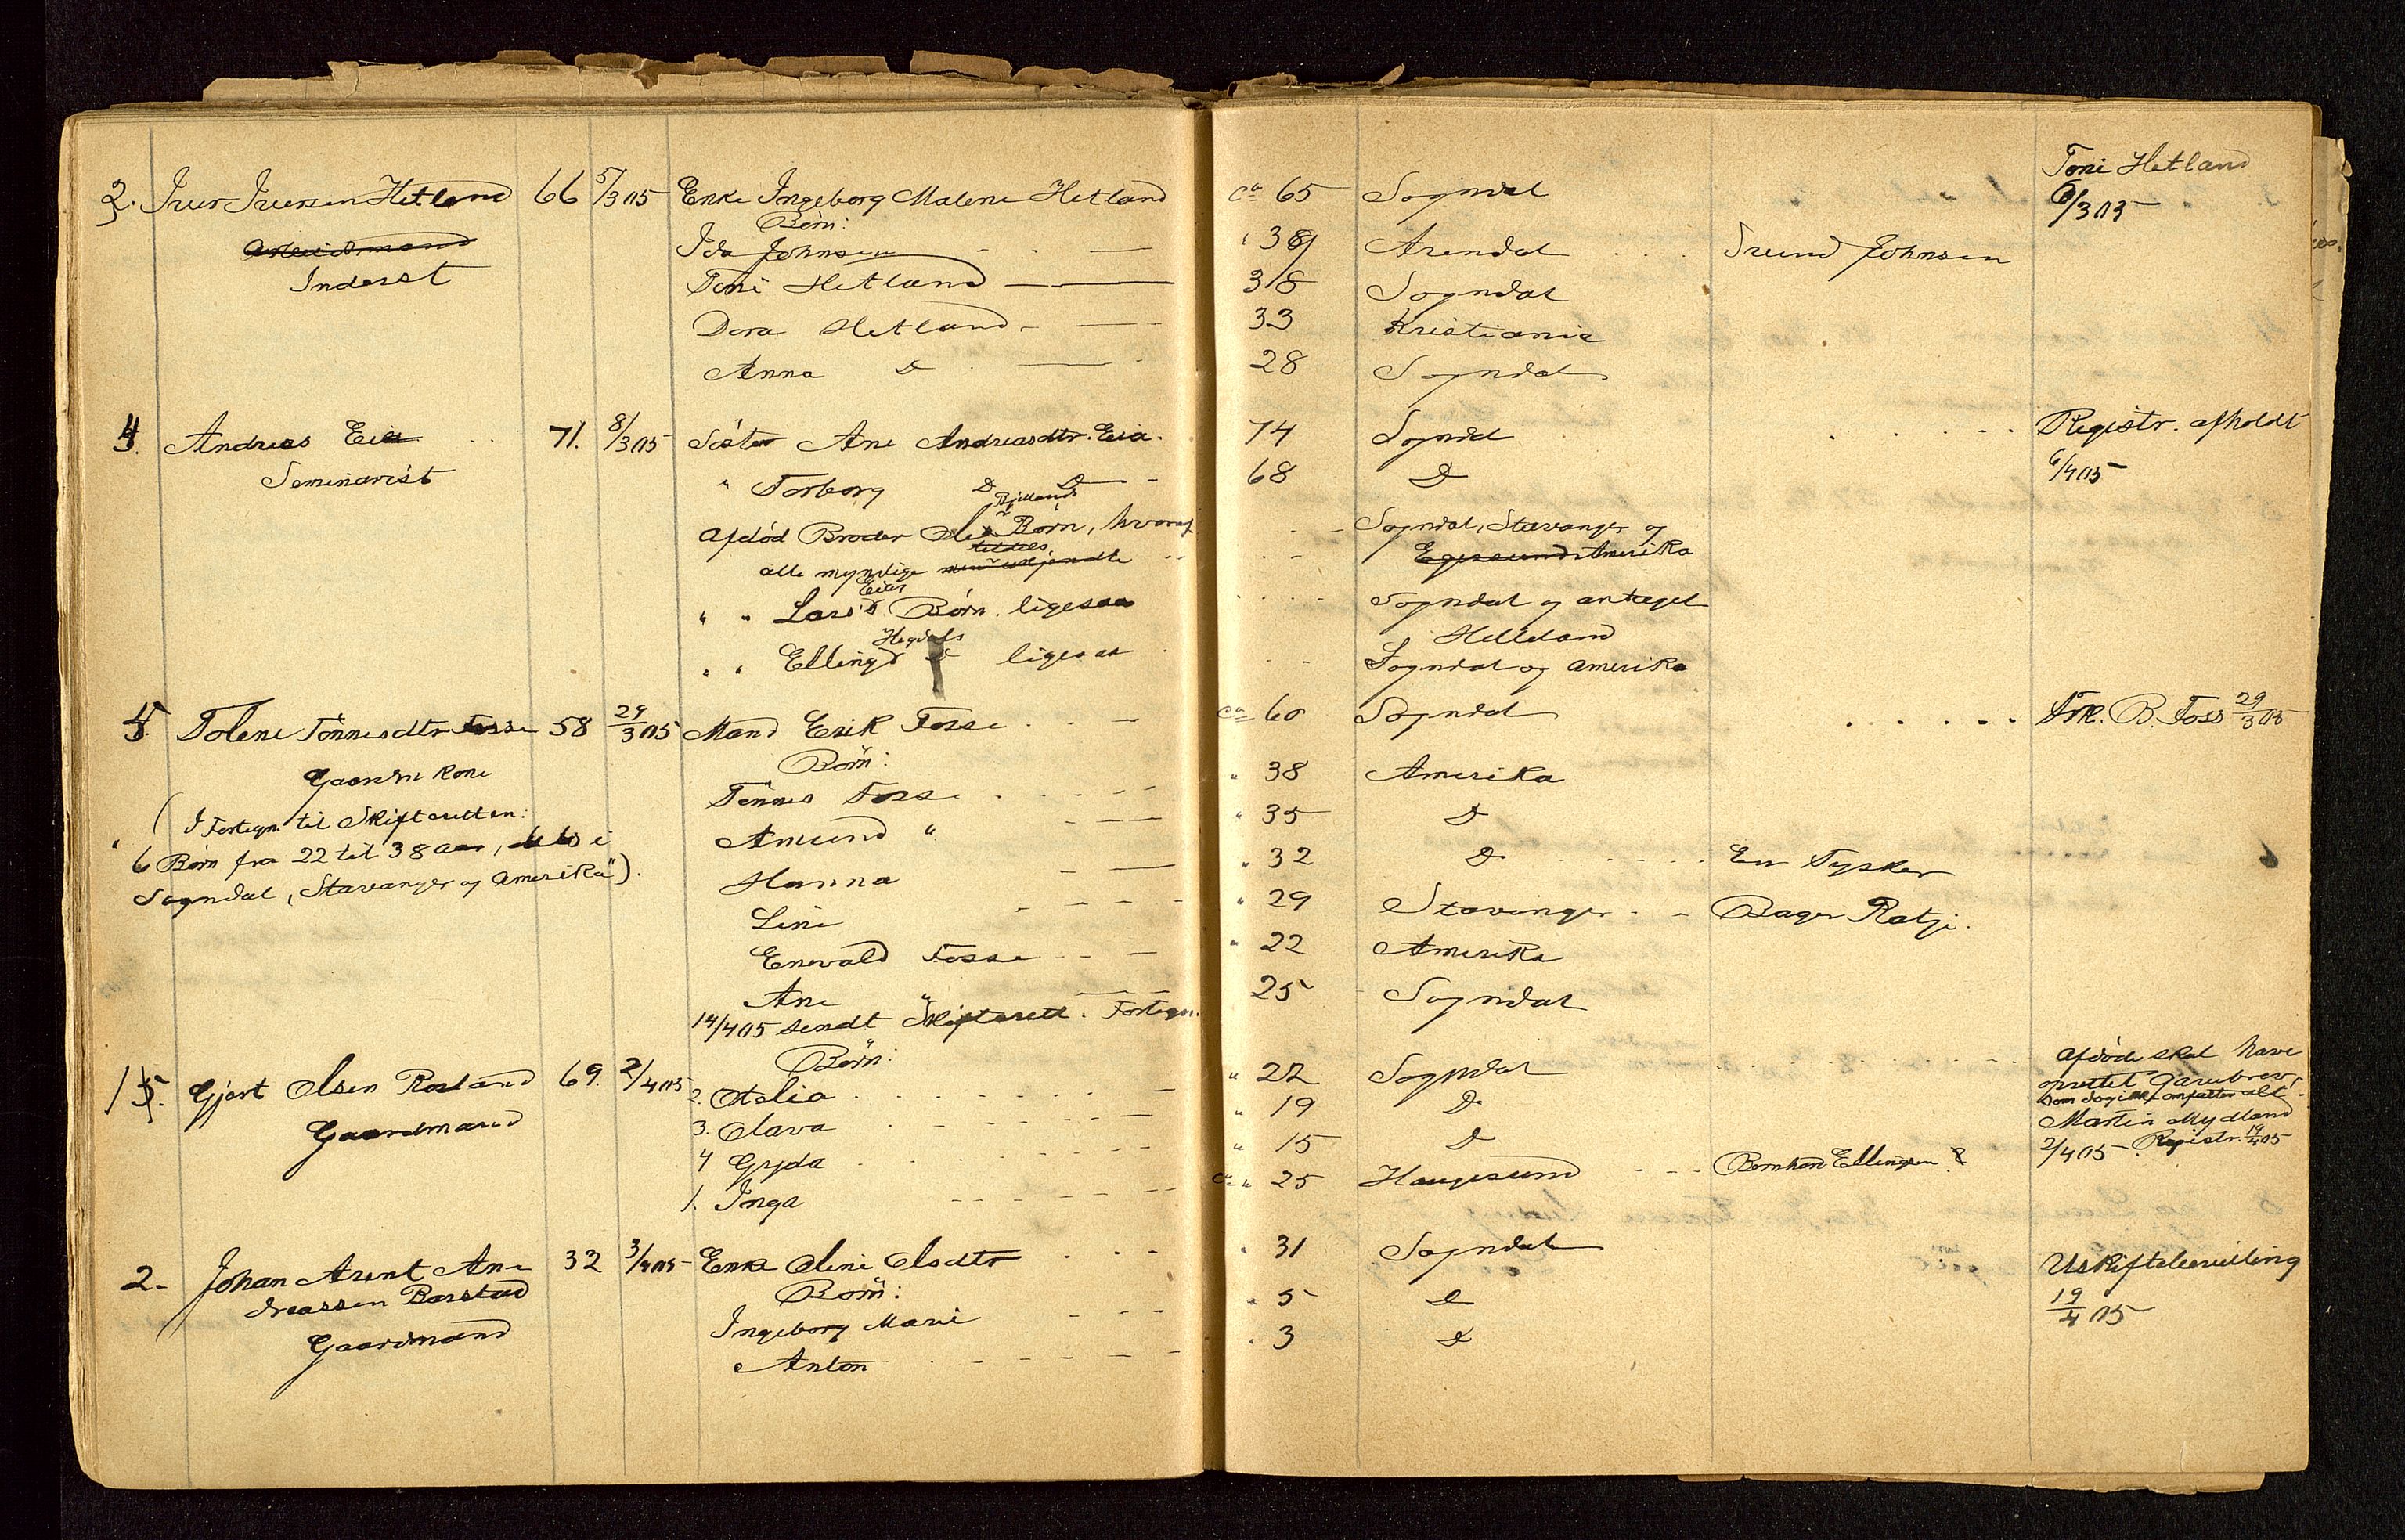 3. Iver Iversen Hetland 66 5/3 05 Enke Ingeborg Malene Hetland ca 65 Sogndal Toni Hetland
Børn: 6/3 05
Arbeidsmand Ida Johnsen " 39 Arendal Svend Johnsen
Inderst Toni Hetland 38 Sogndal
Dora Hetland 33 Kristiania
Anna D 28 Sogndal
4. Andreas Eia 71. 8/3 05 Søster Ane Andreasdtr. Eia. 74 Sogndal Registr. afholdt
Seminarist " Torborg D D 68 D 6/4 05
Bjellands
Afdød Broder Ole's Børn, hvoraf Sogndal, Stavanger og
tildels
alle myndige men ukjendte Egersund Amerika
Eies
" " Lars's Børn. ligesaa Sogndal og antagel
Helleland
Hegdals
" " Ellings D ligesaa Sogndal og Amerika
5. Tolene Tønnesdtr Fosse 58 29/3 05 Mand Erik Fosse ca 60 Sogndal Frk. B. Foss 29/3 05
Gaardm Kone Børn:
Tønnes Fosse " 38 Amerika
(I Fortegn. til Skifteretten: Amund " " 35 D
6 Børn fra 22 til 38 Aar, bo i Hanna " 32 D En Tysker
Sogndal, Stavanger og Amerika"). Line " 29 Stavanger Bager Ratje.
Enevald Fosse " 22 Amerika
Ane " 25 Sogndal
14/4 05 sendt Skifterett. Fortegn.
Børn:
1. Gjert Olsen Rosland 69. 2/4 05 2. Otalia " 22 Sogndal Afdøde skal have
Gaardmand 3. Olava " 19 D oprettet Gavebrev,
4 Gyda " 15 D Martin Mydland
1. Inga ca " 25 Haugesund Ellingsen 2/4 05. Registr. 19/4 05
2. Johan Arent An- 32 3/4 05 Enke Oline Olsdtr " 31 Sogndal Uskiftebevilling
dreassen Barstad Børn: 19/4 05
Gaardmand Ingeborg Marie " 5 D
Anton " 3 D